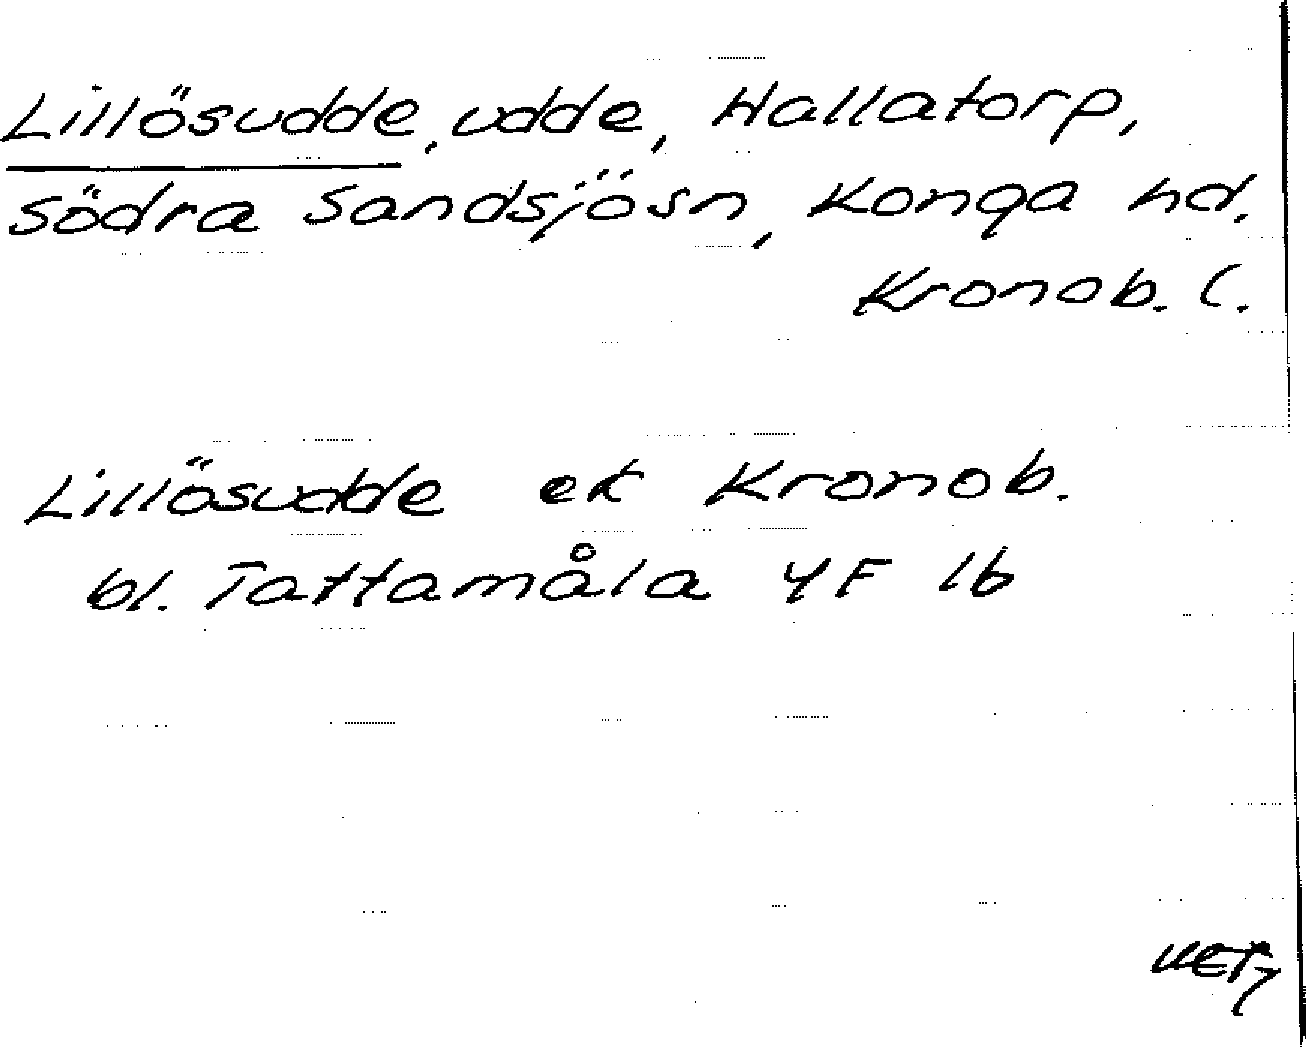 Lillösudde, udde, Hallatorp,
södra Sandsjösn, Konga hd.
Kronob. l.
Lillösudde ek Kronob.
bl. Tattamåla 4F 1b